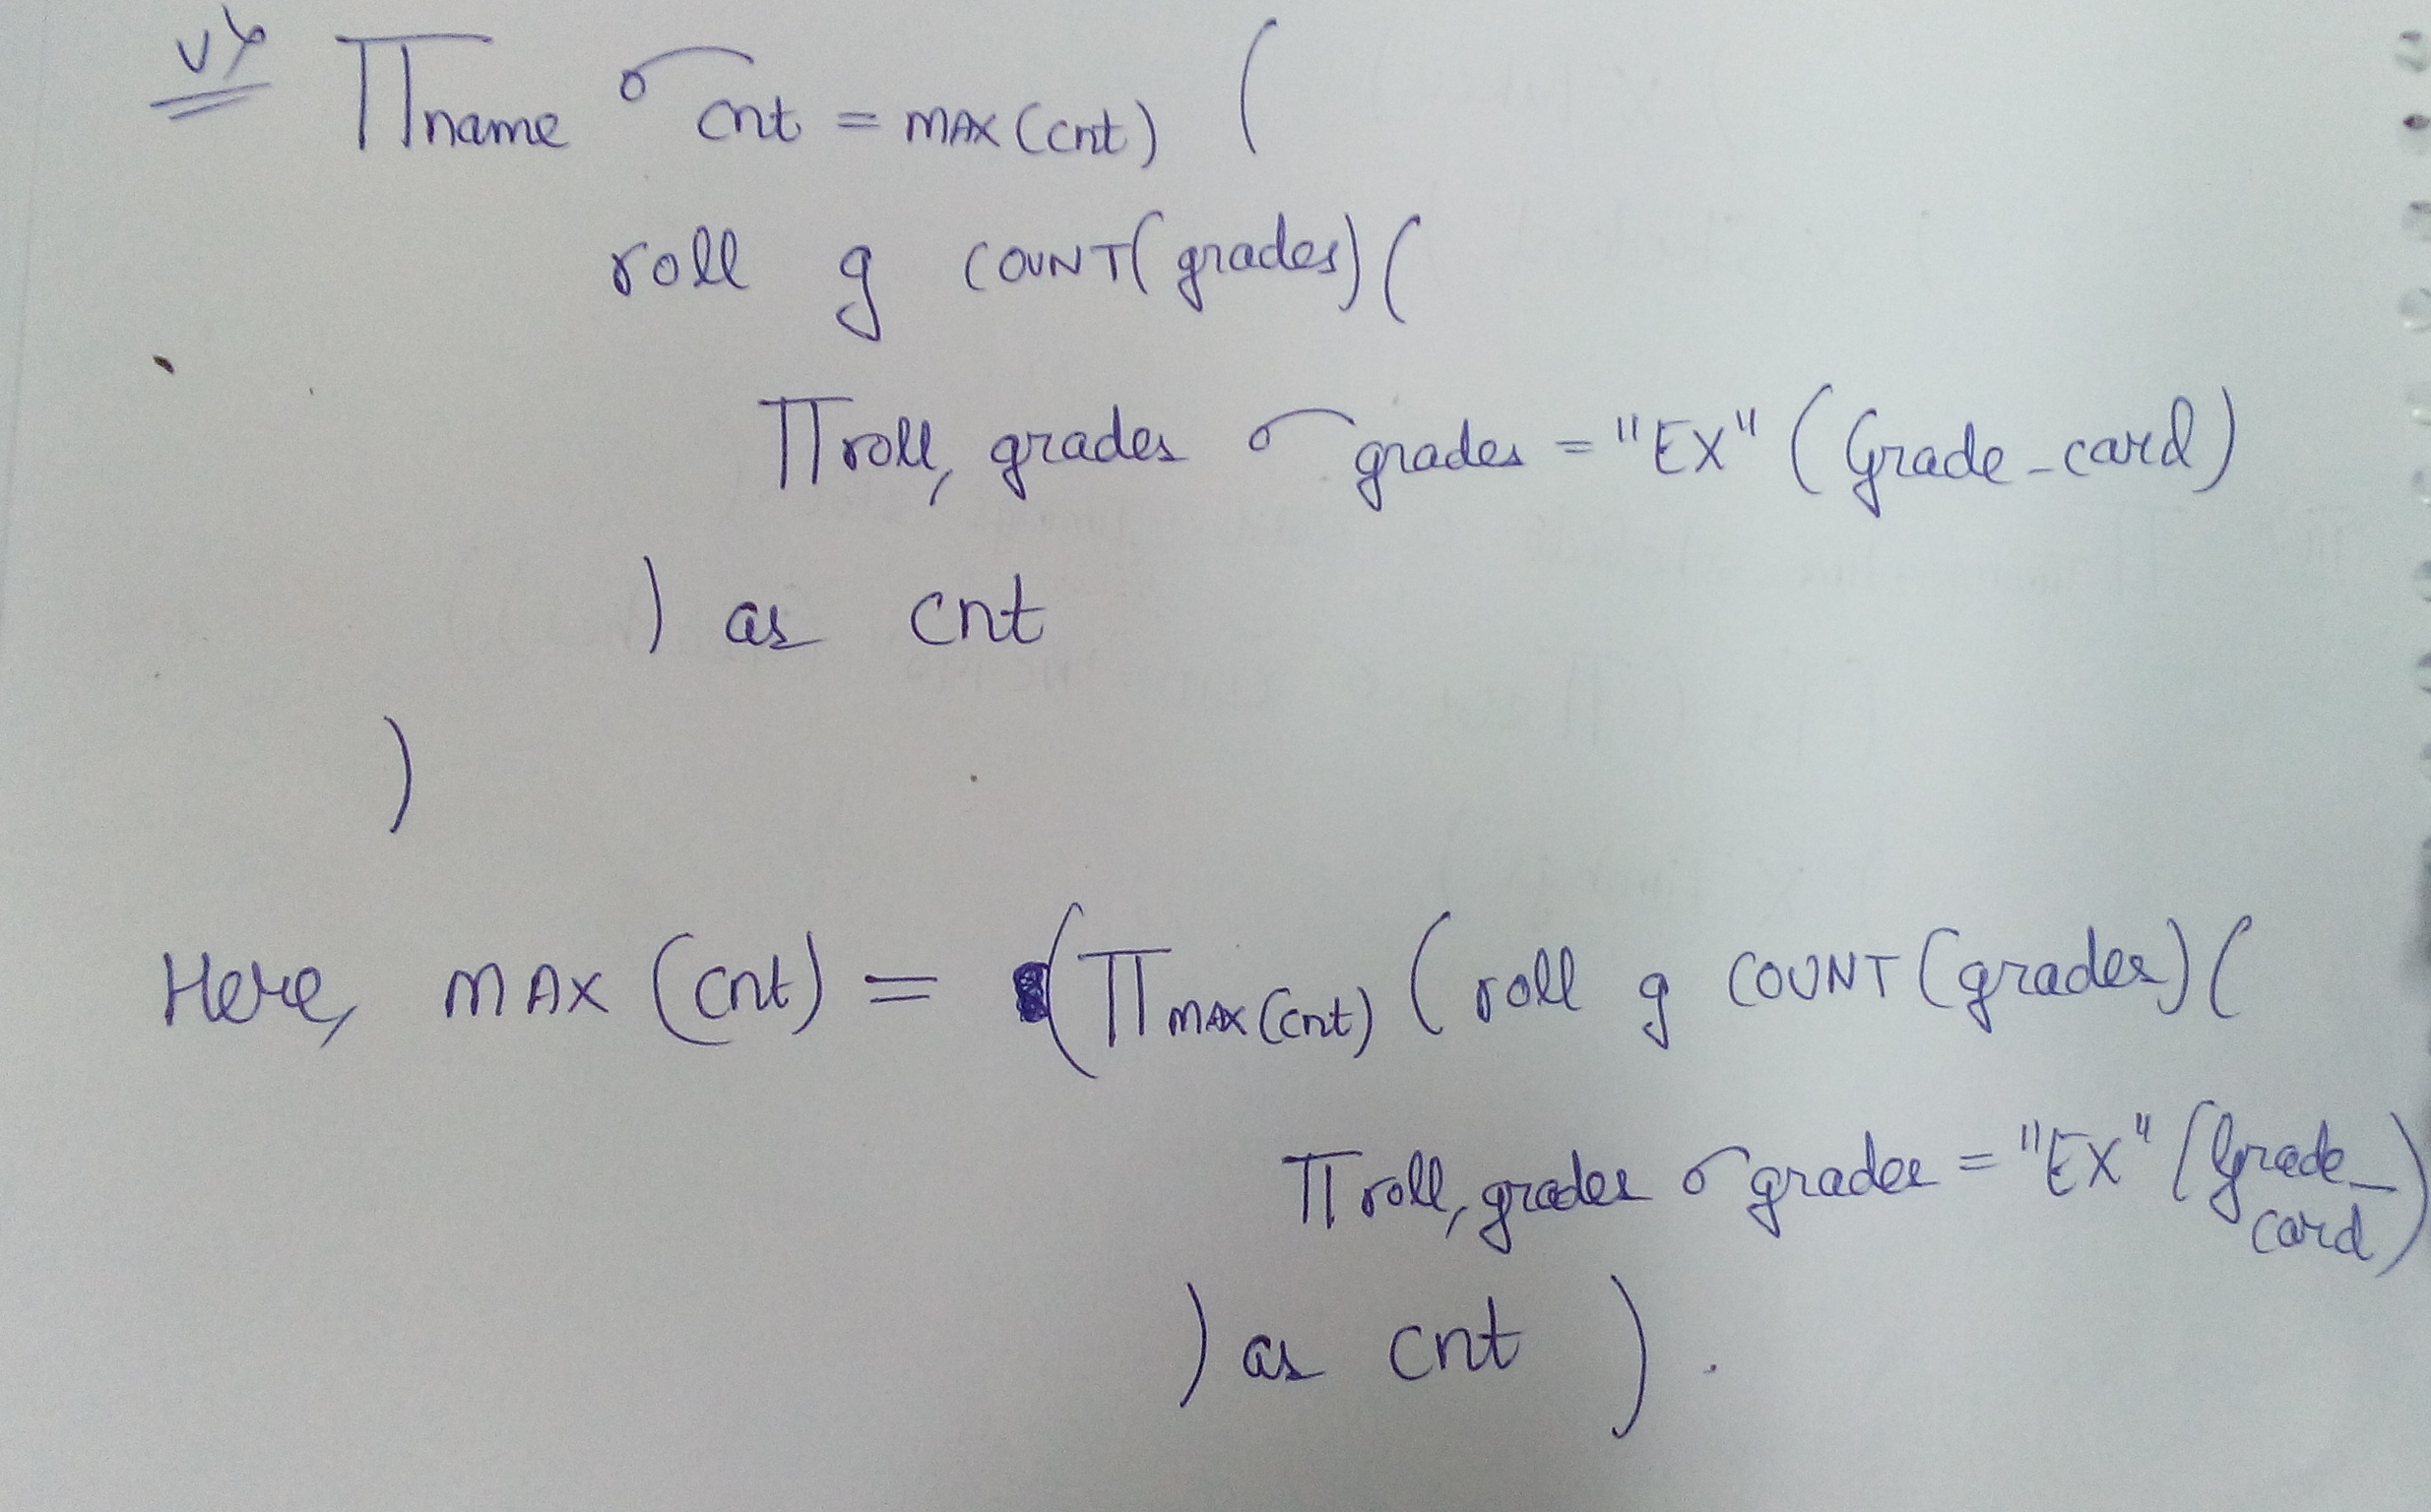 v)
Π name σ cnt = MAX(cnt) (
roll g COUNT(grades) (
Π roll, grades σ grades = "EX" (Grade_card)
) as cnt
)
Here, MAX (cnt) = (Π MAX(cnt) (roll g COUNT(grades) (
Π roll, grades σ grades = "EX" (Grade_
card)
) as cnt ).